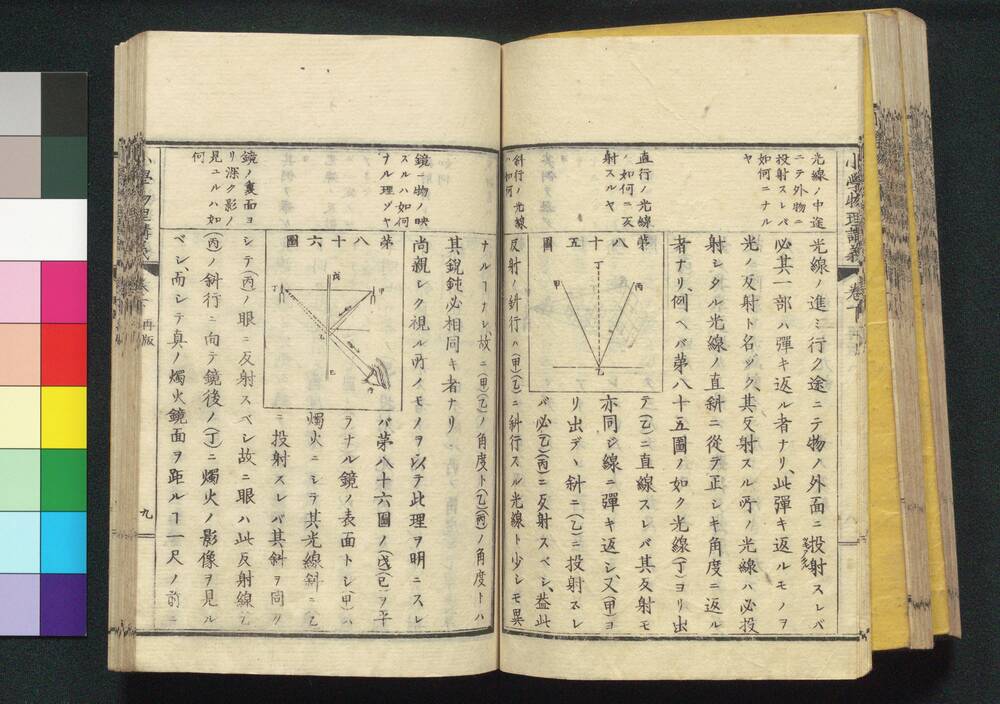 小學物理講義
卷下
光線ノ中途
ニテ外物ニ
投射スレバ
如何ニナル
ヤ
直行ノ光線
ハ如何ニ反
射スルヤ
斜行ノ光線
ハ如何
光線ノ進ミ行ク途ニテ物ノ外面ニ投射スレバ
必其一部ハ彈キ返ル者ナリ、此彈キ返ルモノヲ
光ノ反射ト名ック、其反射スル所ノ光線ハ必投
射シタル光線ノ直斜ニ從テ正シキ角度ニ返ル
者ナリ、例ヘバ第八十五圖ノ如ク光線(丁)ヨリ出
第八十五圖
丁
甲
丙
乙
テ(乙)ニ直線スレバ其反射モ
亦同シ線ニ彈キ返シ、又(甲)ヨ
リ出デヽ斜ニ(乙)ニ投射スレ
バ必(乙)(丙)ニ反射スベシ、蓋此
反射ノ斜行ハ(甲)(乙)ニ斜行スル光線ト少シモ異
鏡ニ物ノ映
スルハ如何
ナル理ヅヤ
鏡ノ裏面ヨ
リ深ク影ノ
見ユルハ如
何
ナルヿナシ、故ニ(甲)(乙)ノ角度ト(乙)(丙)ノ角度トハ
其銳鈍必相同キ者ナリ
尚親シク視ル所ノモノヲ以テ此理ヲ明ニスレ
第八十六圖
戊
甲
丁
乙
己
丙
バ第八十六圖ノ(戊)(己)ヲ平
ラナル鏡ノ表面トシ(甲)ハ
燭火ニシテ其光線斜ニ乙
ニ投射スレバ其斜ヲ同ク
シテ(丙)ノ眼ニ反射スベシ故ニ眼ハ此反射線乙
(丙)ノ斜行ニ向テ鏡後ノ(丁)ニ燭火ノ影像ヲ見ル
ベシ、而シテ真ノ燭火鏡面ヲ距ルヿ一尺ノ前ニ
小學物理講義
卷下
再版
九